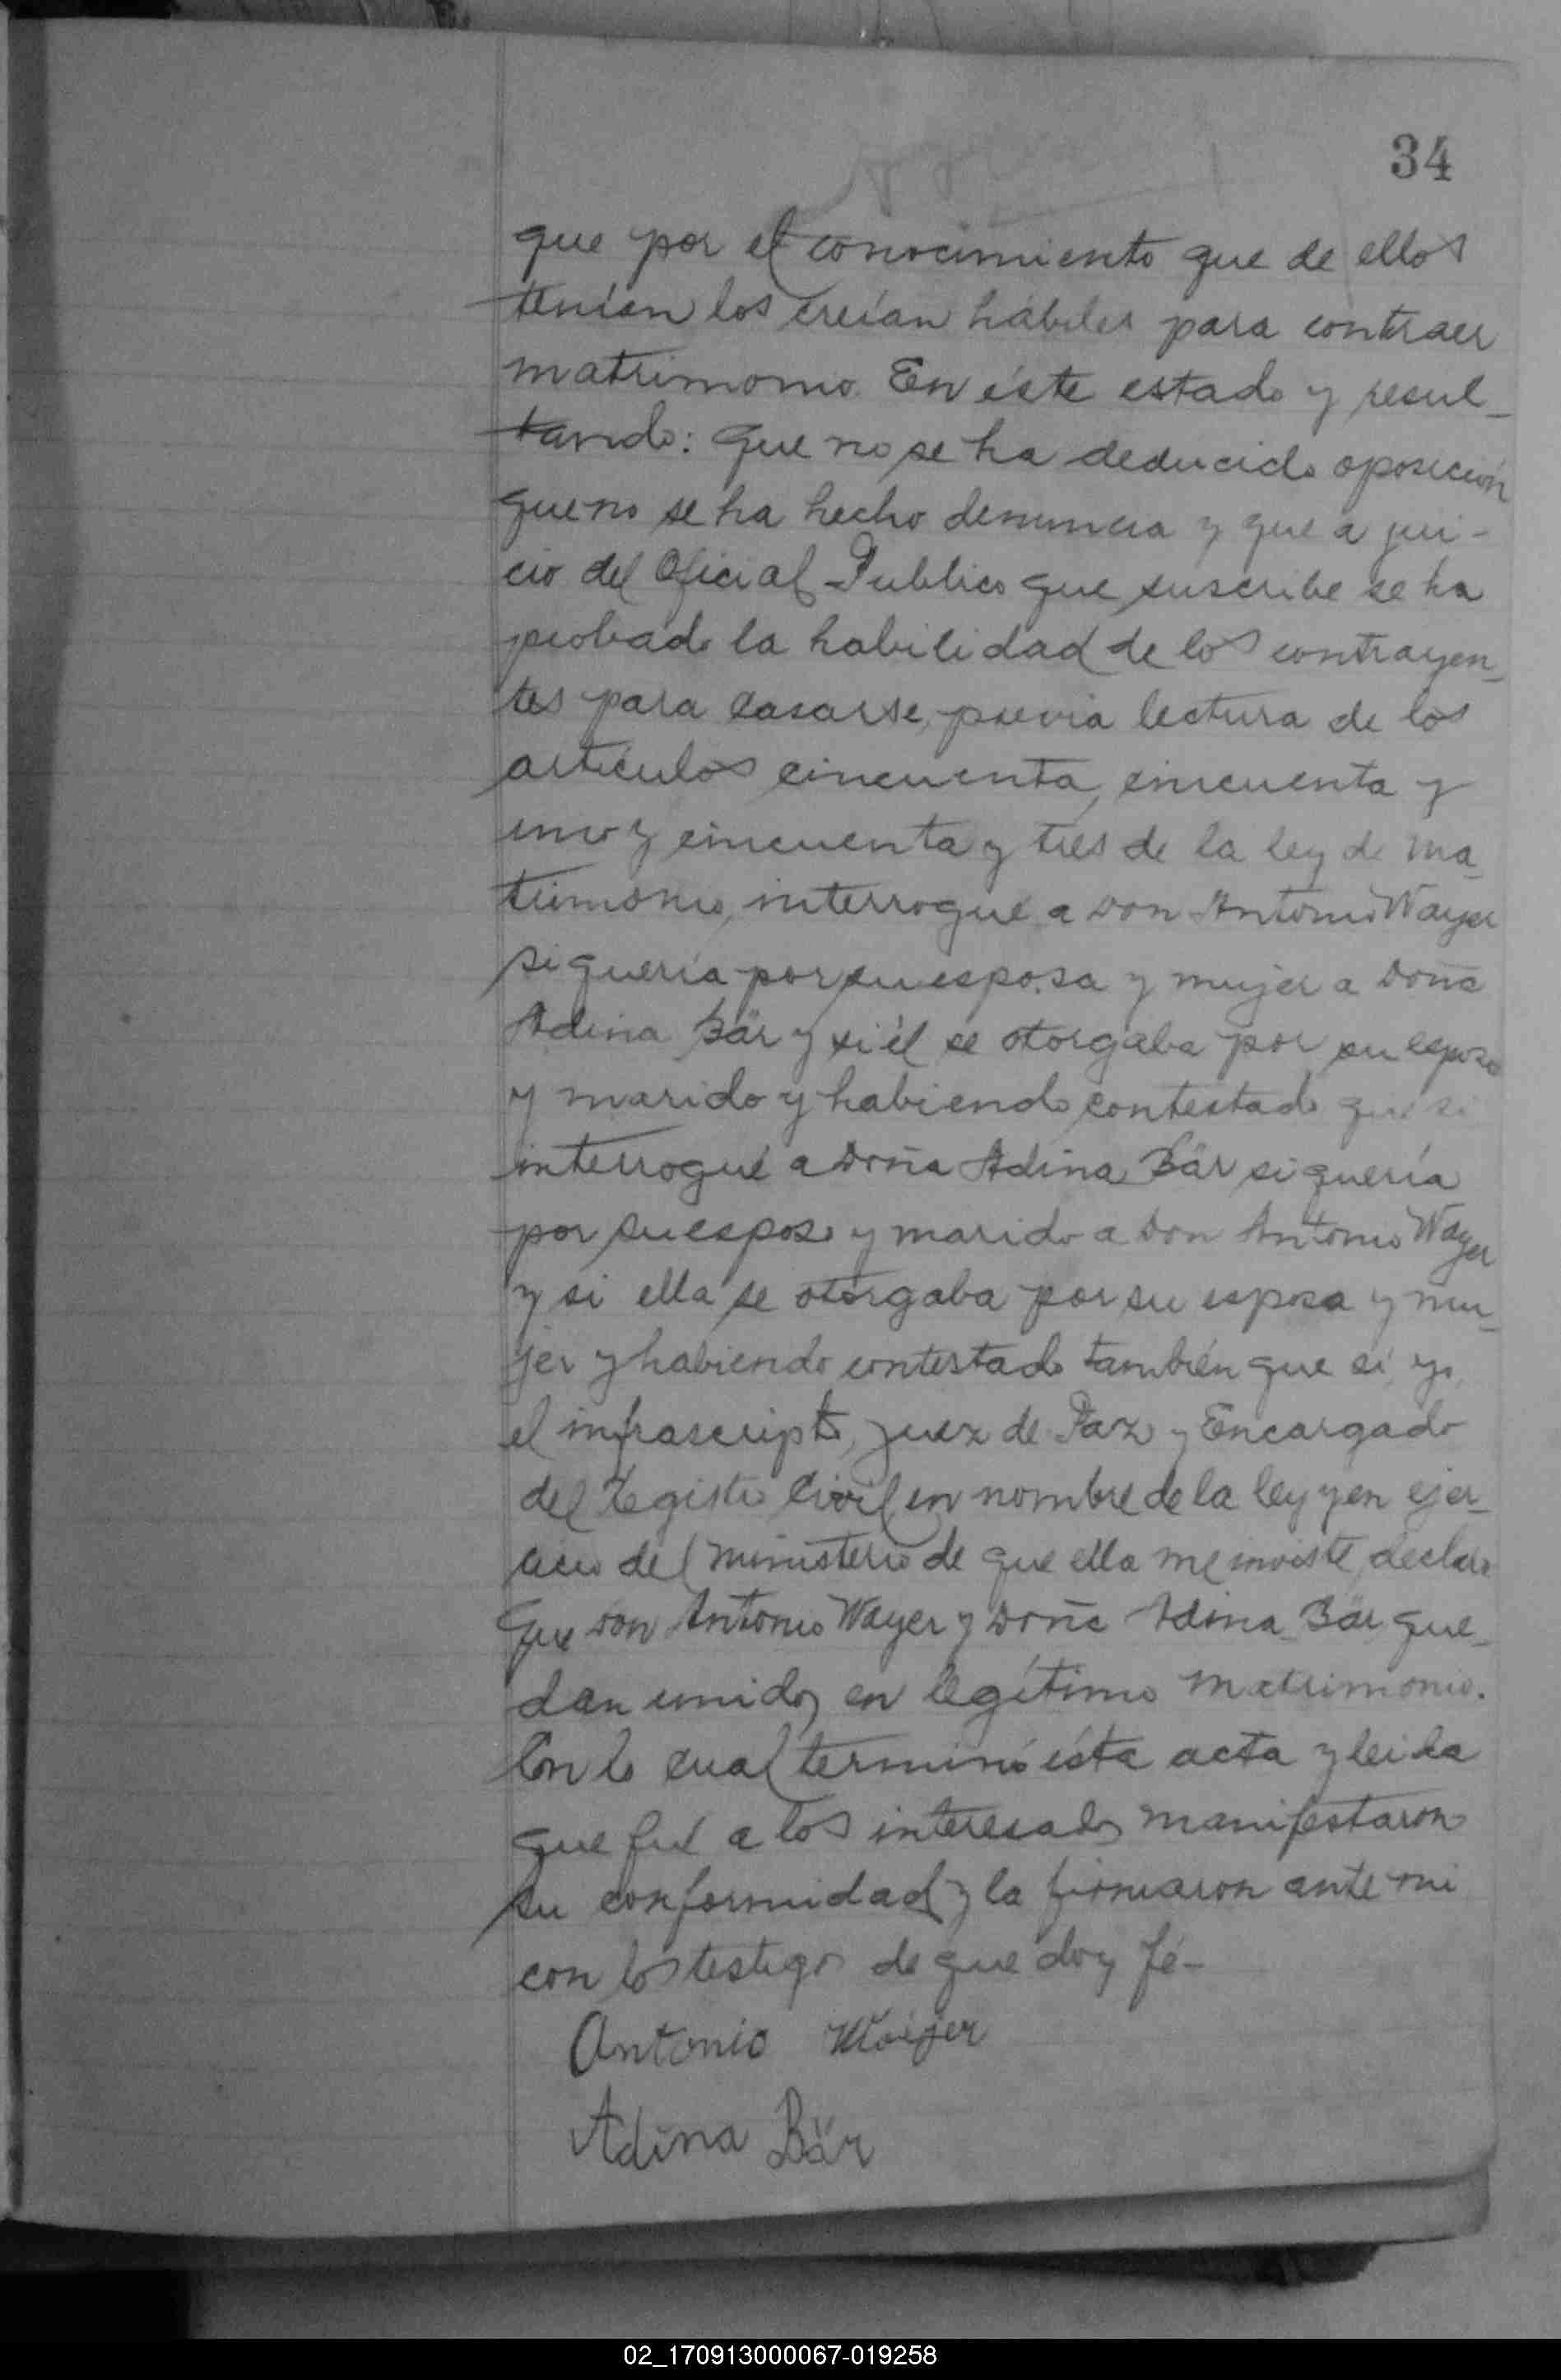 34
que por el conocimiento que de ellos
tenían los creían hábiles para contraer
matrimonio. En éste estado y resul-
tando: que no se ha deducido oposición
que no se ha hecho denuncia y que a jui-
cio del Oficial Publico que suscribe se ha
probado la habilidad de los contrayen-
tes para casarse, previa lectura de los
artículos cincuenta, cincuenta y
uno y cincuenta y tres de la ley de ma-
trimonio, interrogué a Don Antonio Wayer
si quería por su esposa y mujer a Doña
Adina Bär y si él se otorgaba por su esposo
y marido y habiendo contestado que si
interrogué a Doña Adina Bär si quería
por su esposo y marido a Don Antonio Wayer
y si ella se otorgaba por su esposa y mu-
jer y habiendo contestado también que si, yo,
el infrascripto, Juez de Paz y Encargado
del Registro Civil, en nombre de la ley y en ejer-
cicio del ministerio de que ella me inviste, declaro
que Don Antonio Wayer y Doña Adina Bär que-
dan unidos en legítimo matrimonio.
Con lo cual terminó ésta acta y leida
que fué a los interesados manifestaron
su conformidad y la firmaron ante mi
con los testigos de que doy fé-
Antonio
Adina Bär
02_170913000067-019258